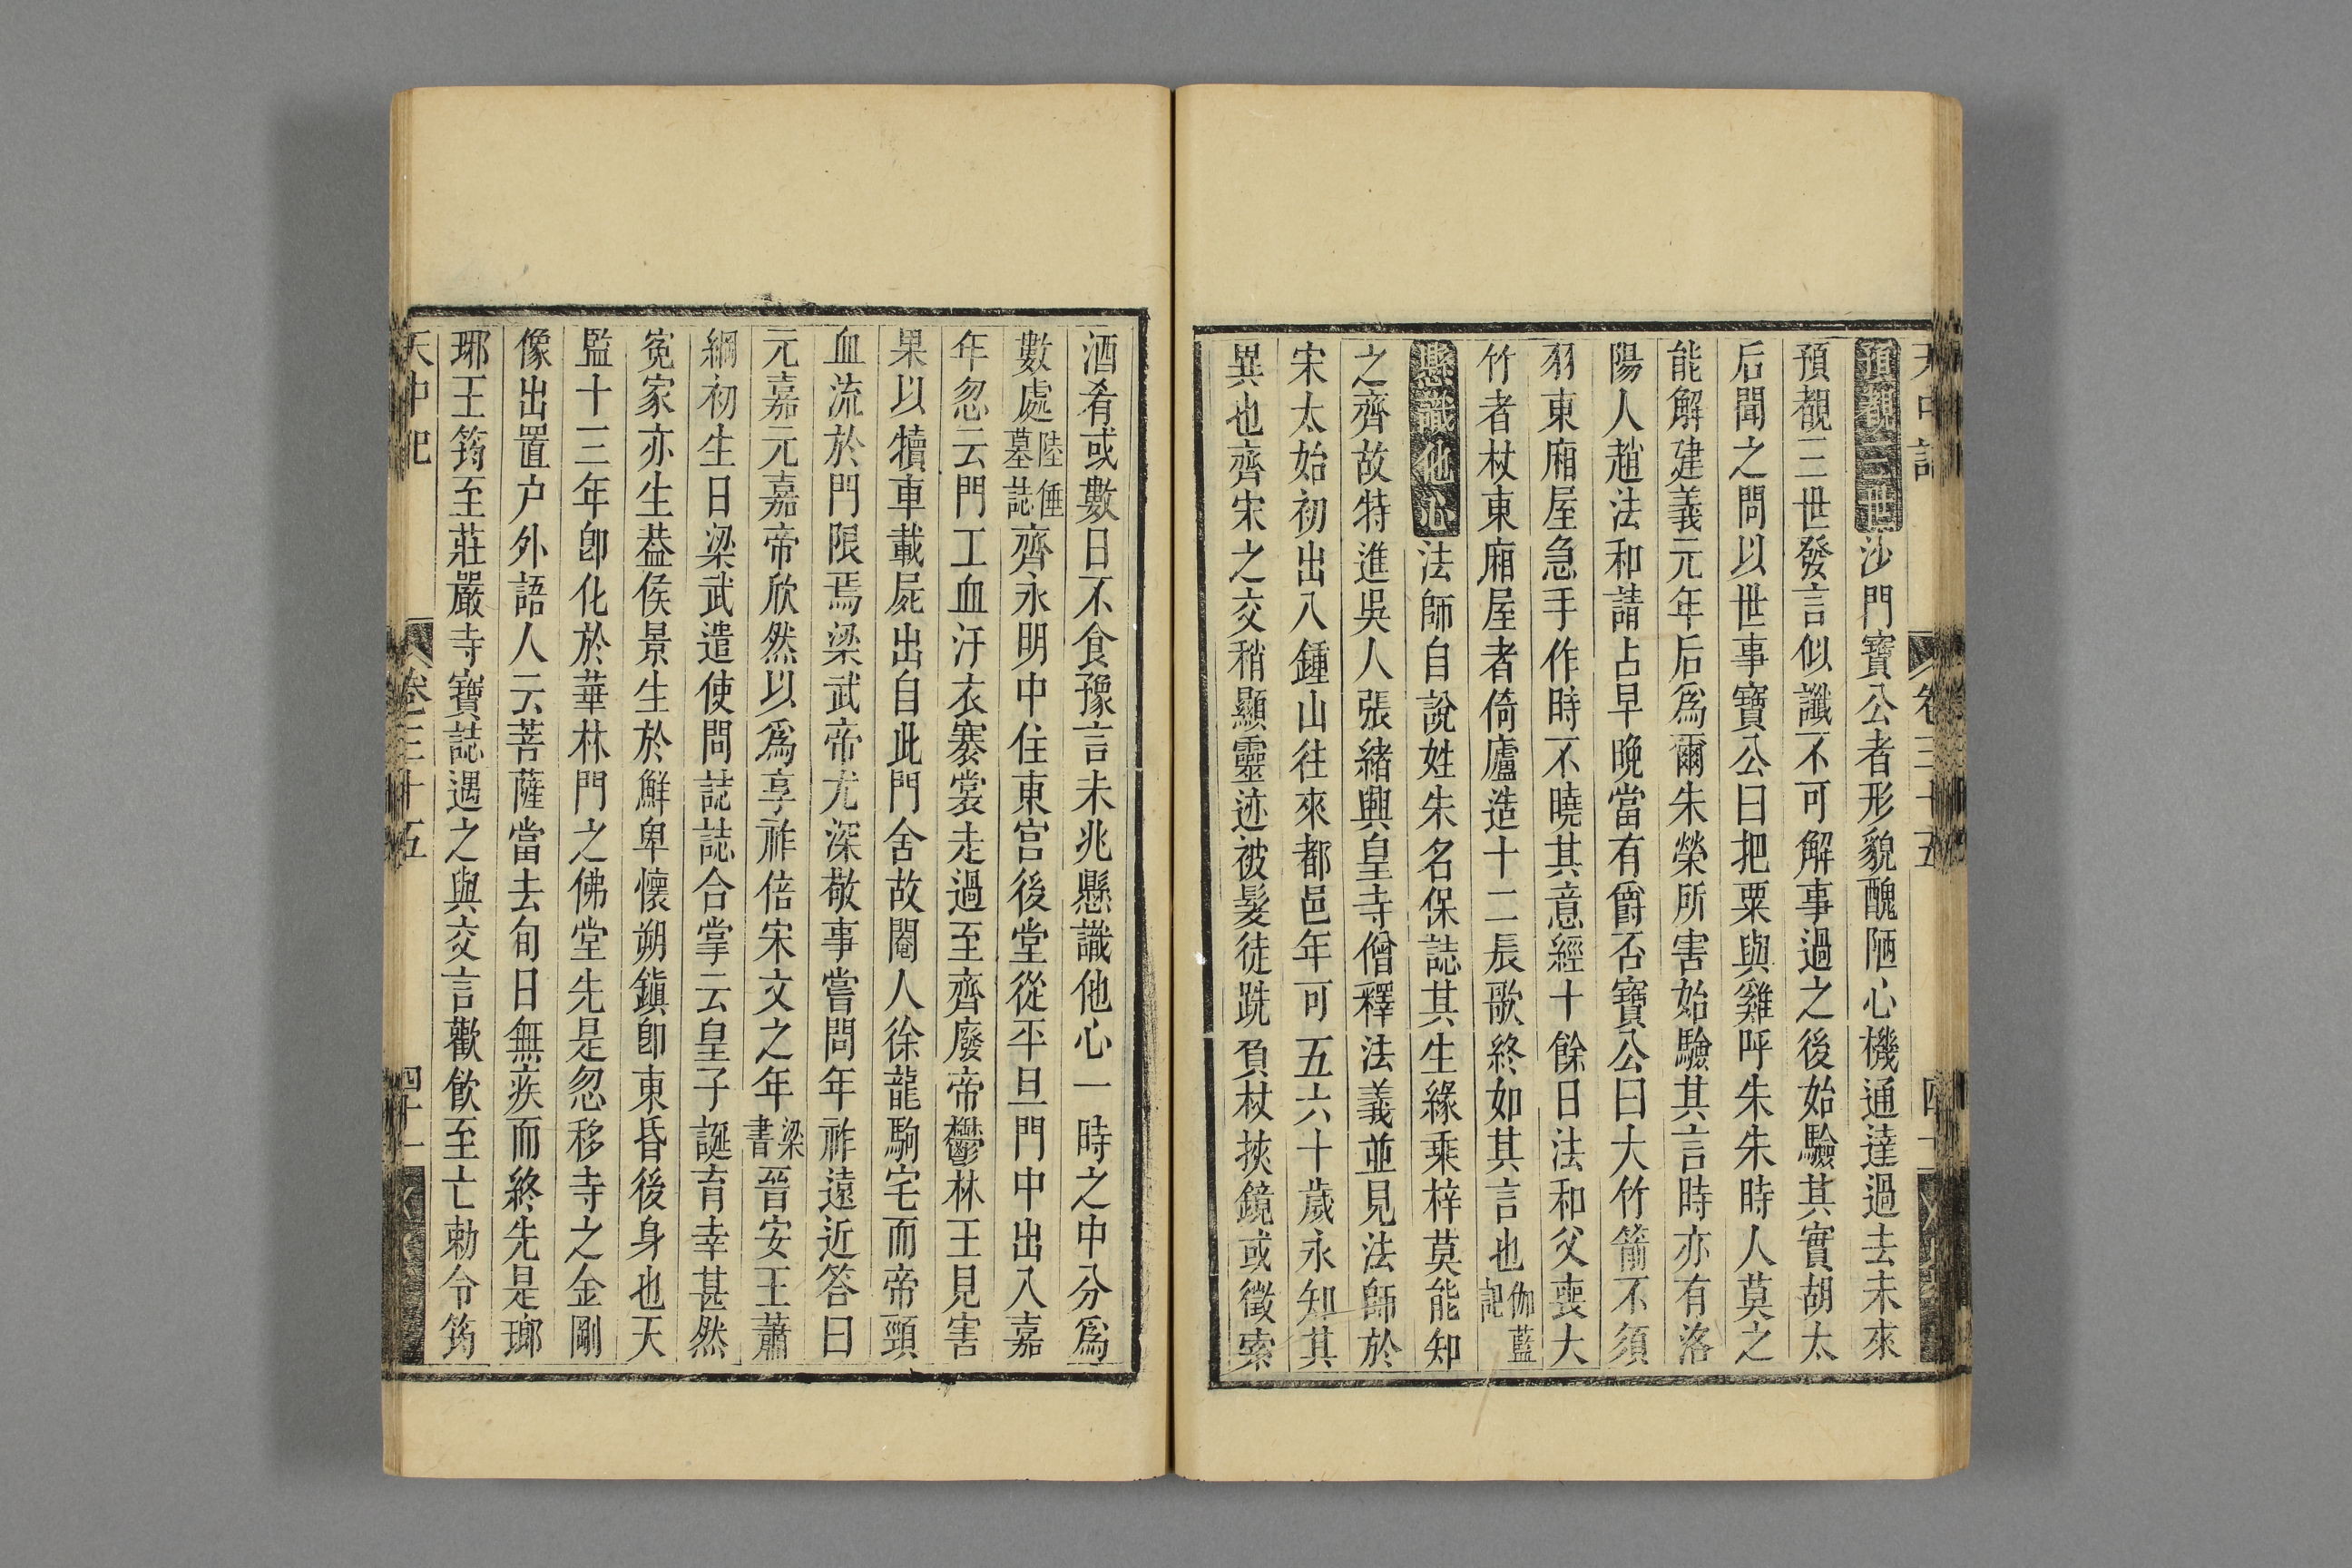 天中記 卷三十五 四十
預覩三世沙門寶公者形貌醜陋心機通達過去未來
預覩三世發言似讖不可解事過之後始驗其實胡太
后聞之問以世事寶公曰把粟與雞呼朱朱時人莫之
能解建義元年后爲爾朱榮所害始驗其言時亦有洛
陽人趙法和請占早晚當有爵否寶公曰大竹箭不須
羽東廂屋急手作時不曉其意經十餘日法和父喪大
竹者杖東廂屋者倚廬造十二辰歌終如其言也伽藍記
懸識他心法師自說姓朱名保誌其生緣乘梓莫能知
之齊故特進吳人張緒興皇寺僧釋法義並見法師於
宋太始初出入鍾山往來都邑年可五六十歲永知其
異也齊宋之交稍顯靈迹被髮徒跣負杖挾鏡或徵索
酒肴或數日不食豫言未兆懸識他心一時之中分爲
數處陸倕墓誌齊永明中住東宮後堂從平旦門中出入嘉
年忽云門工血汙衣褰裳走過至齊廢帝鬱林王見害
果以犢車載屍出自此門舍故閹人徐龍駒宅而帝頸
血流於門限焉梁武帝尤深敬事嘗問年祚遠近答曰
元嘉元嘉帝欣然以爲享祚倍宋文之年梁書晉安王蕭
綱初生日梁武遣使問誌誌合掌云皇子誕育幸甚然
寃家亦生葢侯景生於鮮卑懷朔鎮卽東昏後身也天
監十三年卽化於華林門之佛堂先是忽移寺之金剛
像出置户外語人云菩薩當去旬日無疾而終先是瑯
琊王筠至莊嚴寺寶誌遇之與交言歡飲至亡勅令筠
天中記 卷三十五 四十一